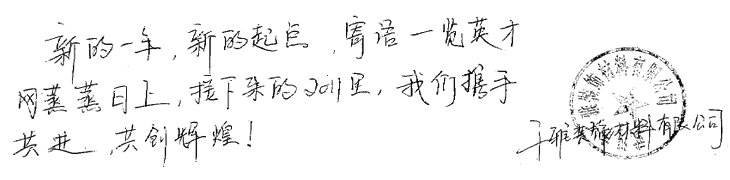 新的一年,新的起点,寄语一览英才
网蒸蒸日上,接下来的2011里,我们携手
共进,共创辉煌!
装饰材料有限公司